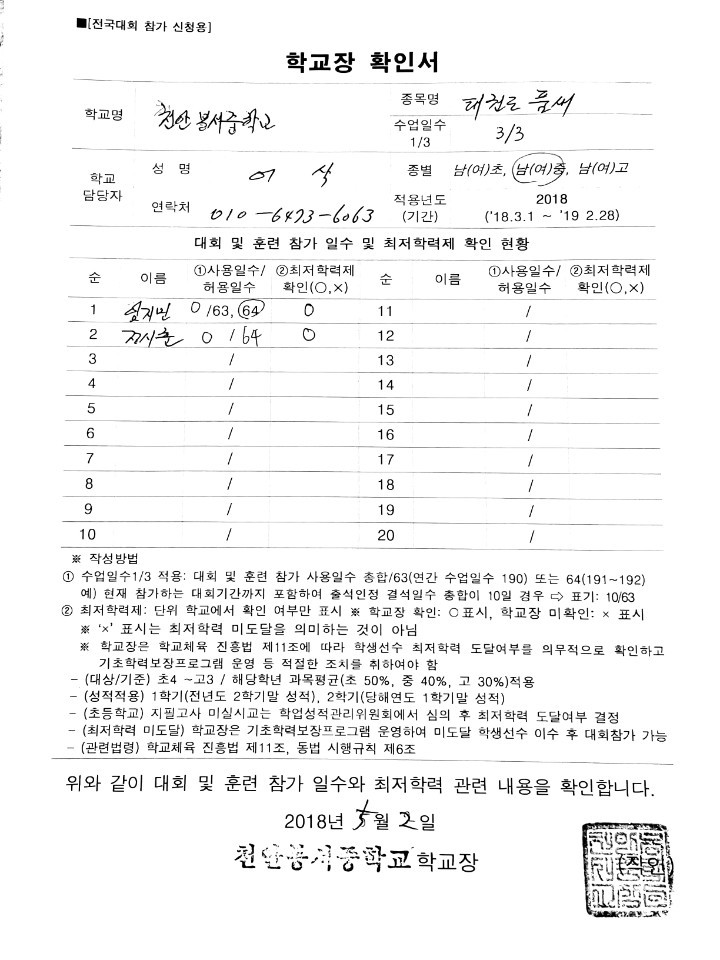 ■[전국대회 참가 신청용]
학교장 확인서
학교명 천안봉서중학교 종목명 태권도 품새
수업일수 1/3 3/3
학교 담당자 성 명 종별 남(여)초, 남(여)중, 남(여)고
연락처 010-6473-6063 적용년도 (기간) 2018 ('18.3.1 ~ '19 2.28)
대회 및 훈련 참가 일수 및 최저학력제 확인 현황
순 이름 ①사용일수/허용일수 ②최저학력제 확인(○,×) 순 이름 ①사용일수/허용일수 ②최저학력제 확인(○,×)
1 0 /63, 64 0 11 /
2 0 / 64 0 12 /
3 / 13 /
4 / 14 /
5 / 15 /
6 / 16 /
7 / 17 /
8 / 18 /
9 / 19 /
10 / 20 /
※ 작성방법
① 수업일수1/3 적용: 대회 및 훈련 참가 사용일수 총합/63(연간 수업일수 190) 또는 64(191~192)
예) 현재 참가하는 대회기간까지 포함하여 출석인정 결석일수 총합이 10일 경우 ⇨ 표기: 10/63
② 최저학력제: 단위 학교에서 확인 여부만 표시 ※ 학교장 확인: ○표시, 학교장 미확인: × 표시
※ '×' 표시는 최저학력 미도달을 의미하는 것이 아님
※ 학교장은 학교체육 진흥법 제11조에 따라 학생선수 최저학력 도달여부를 의무적으로 확인하고
기초학력보장프로그램 운영 등 적절한 조치를 취하여야 함
- (대상/기준) 초4 ~고3 / 해당학년 과목평균(초 50%, 중 40%, 고 30%)적용
- (성적적용) 1학기(전년도 2학기말 성적), 2학기(당해연도 1학기말 성적)
- (초등학교) 지필고사 미실시교는 학업성적관리위원회에서 심의 후 최저학력 도달여부 결정
- (최저학력 미도달) 학교장은 기초학력보장프로그램 운영하여 미도달 학생선수 이수 후 대회참가 가능
- (관련법령) 학교체육 진흥법 제11조, 동법 시행규칙 제6조
위와 같이 대회 및 훈련 참가 일수와 최저학력 관련 내용을 확인합니다.
2018년 5월 2일
천안봉서중학교 학교장 (직인)